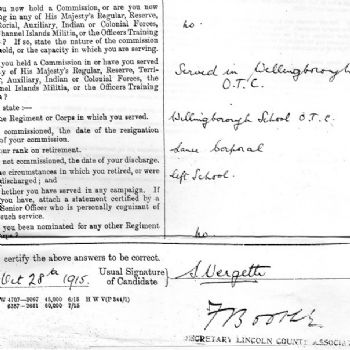 you now hold a Commission, or are you now
ing in any of His Majesty's Regular, Reserve,
torial, Auxiliary, Indian or Colonial Forces,
hannel Islands Militia, or the Officers Training
? If so, state the nature of the commission
hold, or the capacity in which you are serving.
no.
you held a Commission in or have you served
y of His Majesty's Regular, Reserve, Terri-
Auxiliary, Indian or Colonial Forces, the
nel Islands Militia, or the Officers Training
?
Served in Wellingborough
O.T.C.
state :—
he Regiment or Corps in which you served.
Wellingborough School O.T.C.
commissioned, the date of the resignation
of your commission.
our rank on retirement.
Lance Corporal
not commissioned, the date of your discharge.
he circumstances in which you retired, or were
discharged ; and
Left School.
hether you have served in any campaign. If
you have, attach a statement certified by a
Senior Officer who is personally cognisant of
such service.
you been nominated for any other Regiment
rps ?
no.
certify the above answers to be correct.
Oct 28th 1915.
Usual Signature
of Candidate
S. Vergette
W 4707—3097 45,000 6/15 H W V(P 344/1)
6387—3681 60,000 7/15
SECRETARY LINCOLN COUNTY ASSOCIAT